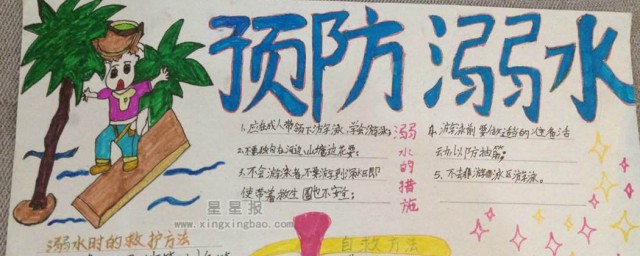 预防溺水
1.应在成人带领下游泳，学会游泳；
2.不要独自在河边、山塘边玩耍；
3.不会游泳者不要游到深水区即
使带着救生圈也不安全；
溺水的措施
4.游泳前要做适当的准备活
动以防抽筋；
5.不去非游泳区游泳。
星星报
www.xingxingbao.com
溺水时的救护方法
自救方法